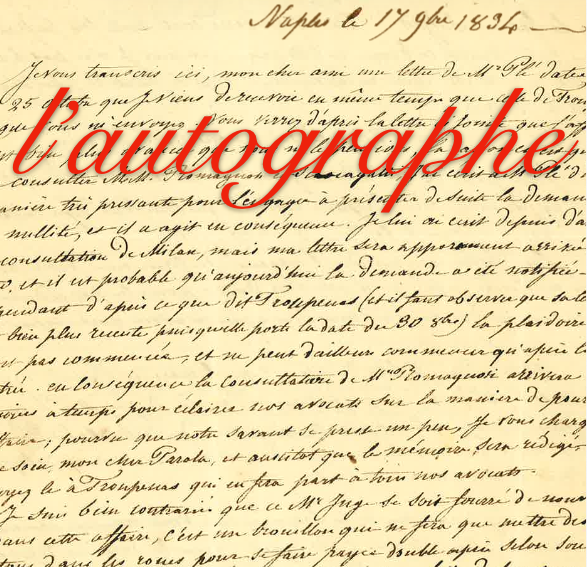 Naples le 17 9bre 1834
l'autographe
Je vous transcris ici, mon cher ami une lettre de Mr Plé datée
25 que je viens de recevoir en même temps que celle de Trou
que vous m'envoyez. Vous verrez d'après la lettre
consulter M.M. Romagnosi
manière très pressante pour l'engager à présenter de suite la demande
nullité, et il a agit en conséquence. Je lui ai écrit depuis d'a
consultation de Milan, mais ma lettre sera arrivée
et il est probable qu'aujourd'hui la demande a été notifiée
pendant d'après ce que dit Troupenas (et il faut observer que sa le
bien plus recente, puisqu'elle porte la date du 30 8bre) la plaidoirie
pas commencée, et ne peut d'ailleurs commencer qu'après l
trée. en conséquence la consultation de Mr Romagnosi arrivera
à temps pour éclairer nos avocats sur la manière de pour
pourvu que notre savant se presse un peu, Je vous charg
ce soin, mon cher Parola, et aussitot que le mémoire sera rédigé
le à Troupenas qui en fera part à tous nos avocats.
Je suis bien contrarié que ce Mr Juge se soit fourré de nouv
dans cette affaire, c'est un brouillon qui ne fera que mettre des
dans les roues pour se faire payer double après selon sou